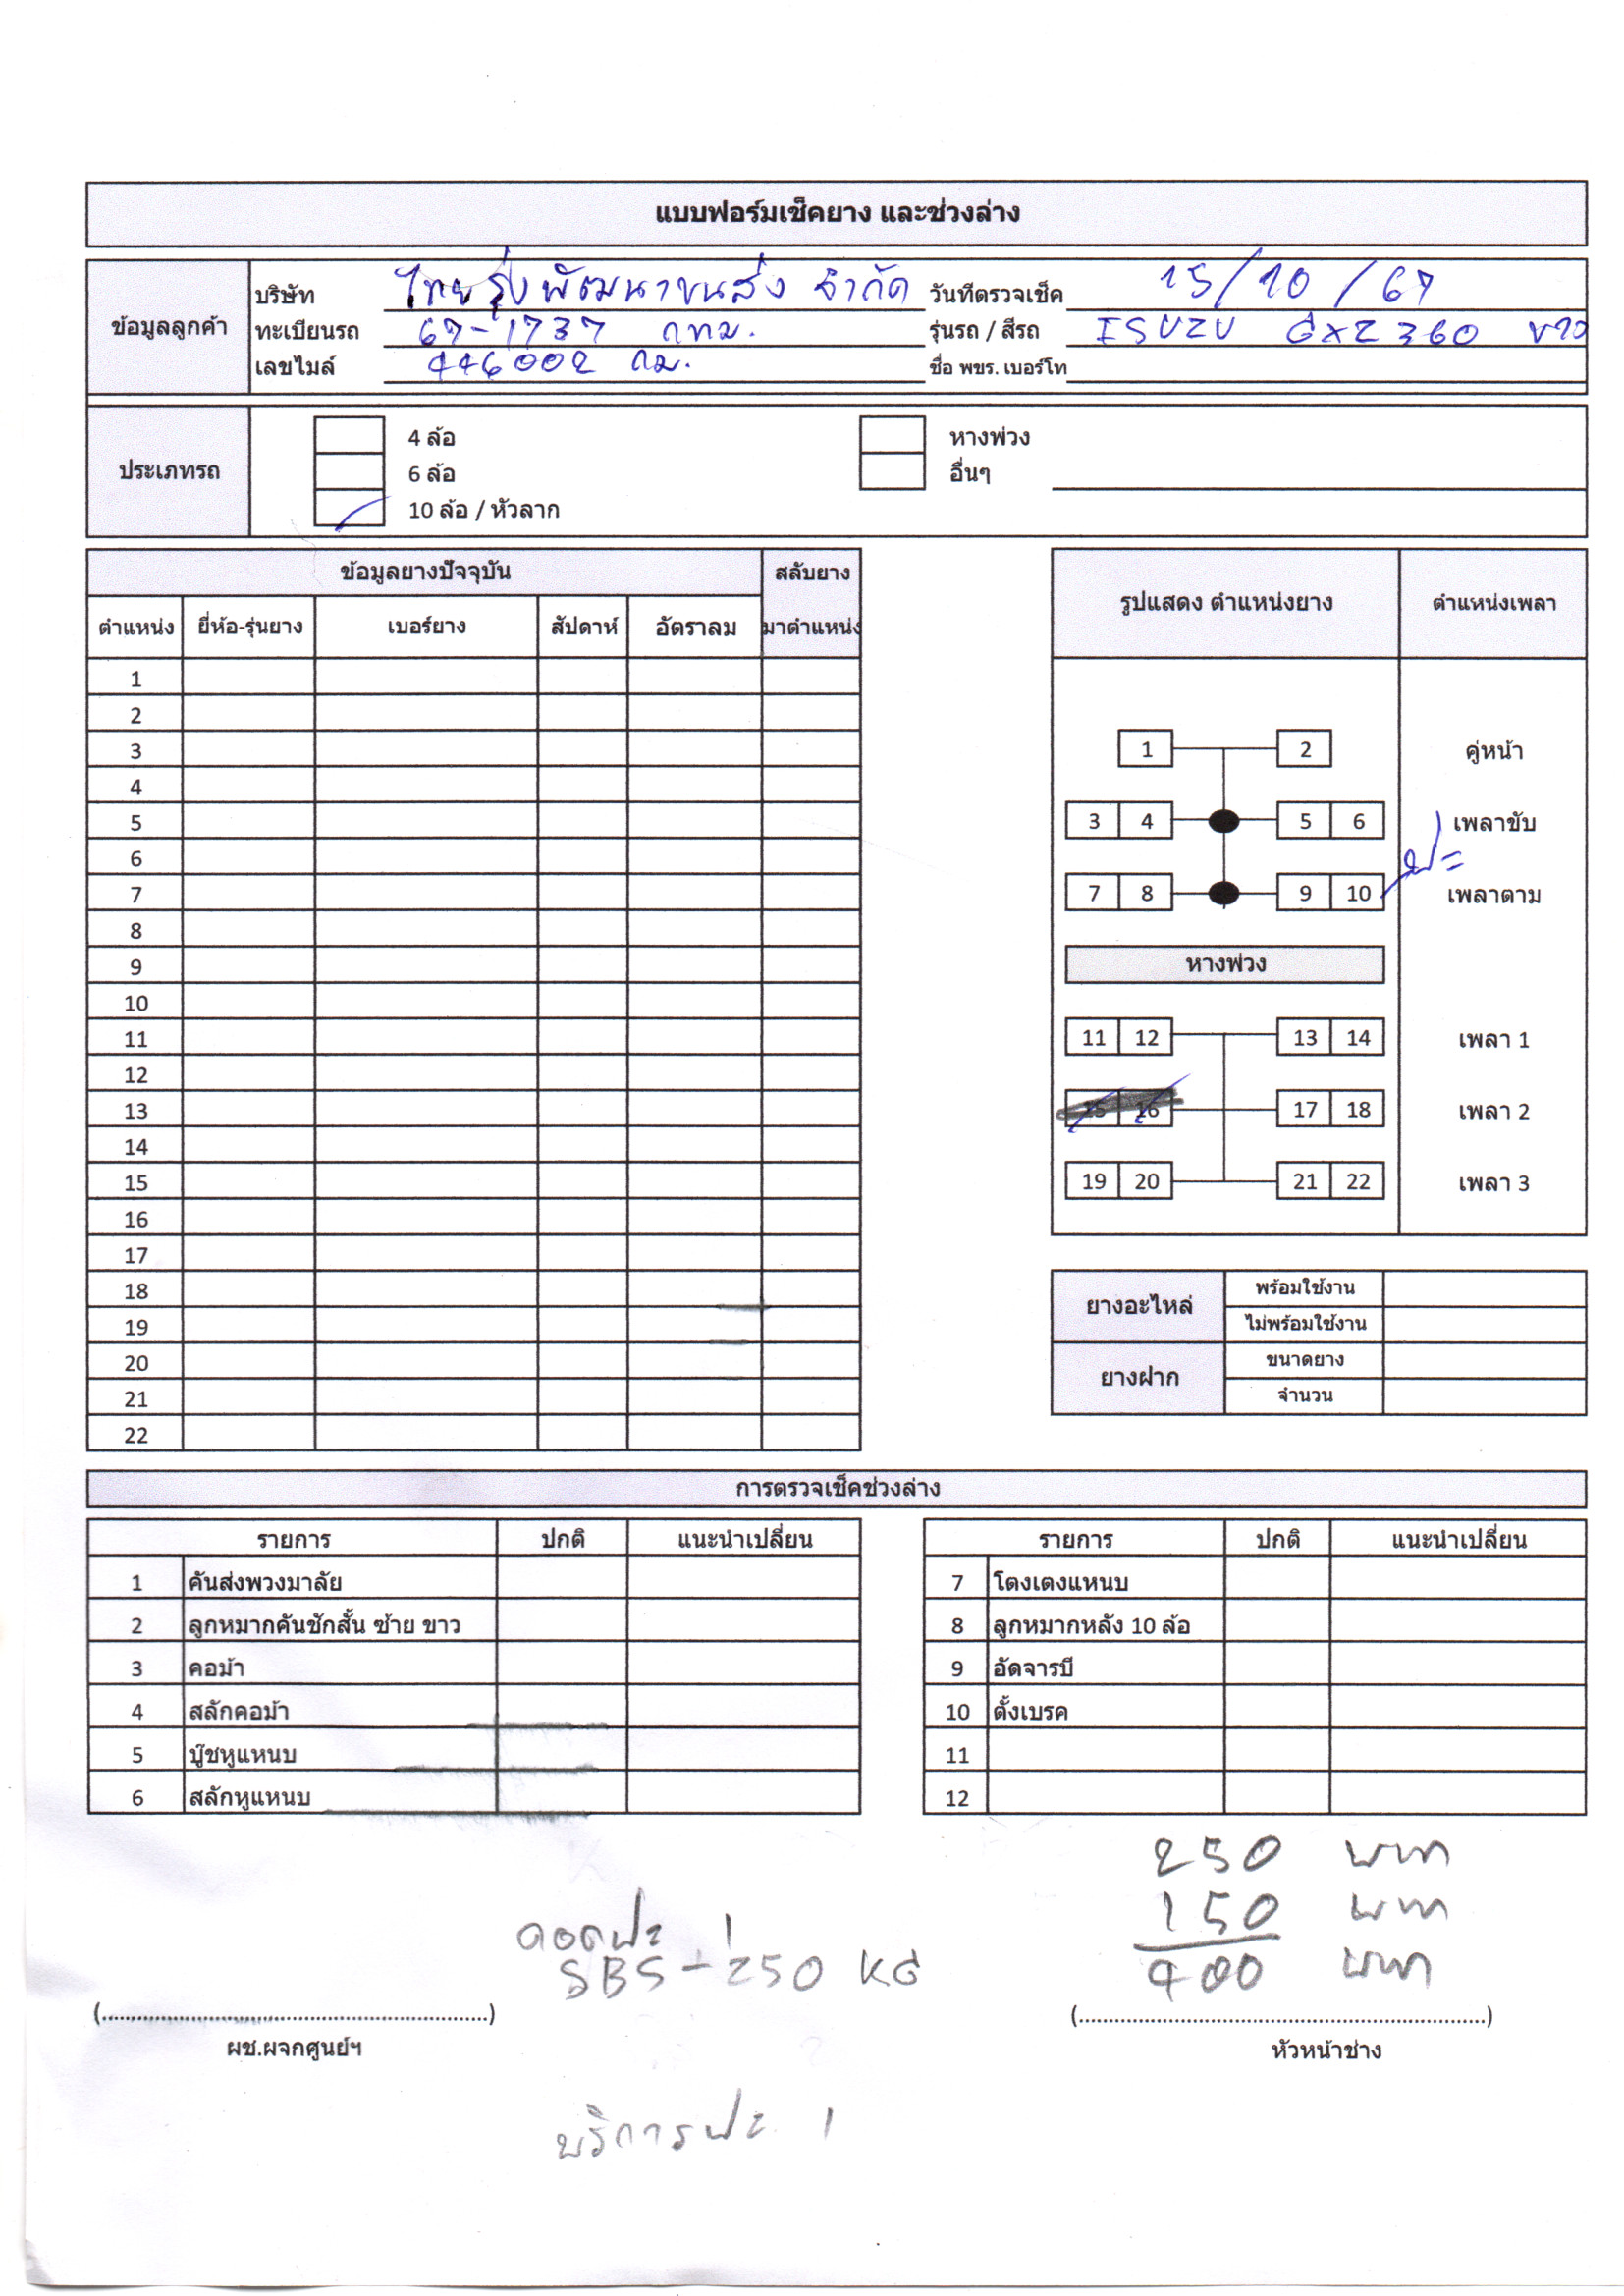 แบบฟอร์มเช็คยาง และช่วงล่าง
ข้อมูลลูกค้า
บริษัท ไทยรุ่งพัฒนาขนส่ง จำกัด วันที่ตรวจเช็ค 15/10/67
ทะเบียนรถ 67-1737 กทม. รุ่นรถ / สีรถ ISUZU GXZ 360 ขาว
เลขไมล์ 446002 กม. ชื่อ พขร. เบอร์โท
ประเภทรถ
4 ล้อ หางพ่วง
6 ล้อ อื่นๆ
10 ล้อ / หัวลาก
ข้อมูลยางปัจจุบัน สลับยาง
ตำแหน่ง ยี่ห้อ-รุ่นยาง เบอร์ยาง สัปดาห์ อัตราลม มาตำแหน่ง
1
2
3
4
5
6
7
8
9
10
11
12
13
14
15
16
17
18
19
20
21
22
รูปแสดง ตำแหน่งยาง ตำแหน่งเพลา
1 2 คู่หน้า
3 4 5 6 เพลาขับ
ปะ
7 8 9 10 เพลาตาม
หางพ่วง
11 12 13 14 เพลา 1
15 16 17 18 เพลา 2
19 20 21 22 เพลา 3
ยางอะไหล่ พร้อมใช้งาน
ไม่พร้อมใช้งาน
ยางฝาก ขนาดยาง
จำนวน
การตรวจเช็คช่วงล่าง
รายการ ปกติ แนะนำเปลี่ยน
1 คันส่งพวงมาลัย
2 ลูกหมากคันชักสั้น ซ้าย ขาว
3 คอม้า
4 สลักคอม้า
5 บู๊ชหูแหนบ
6 สลักหูแหนบ
รายการ ปกติ แนะนำเปลี่ยน
7 โตงเตงแหนบ
8 ลูกหมากหลัง 10 ล้อ
9 อัดจารบี
10 ตั้งเบรค
11
12
250 บาท
150 บาท
400 บาท
ถอดปะ 1
SBS-250 KG
(........................................................)
ผช.ผจกศูนย์ฯ
(........................................................)
หัวหน้าช่าง
บริการปะ 1